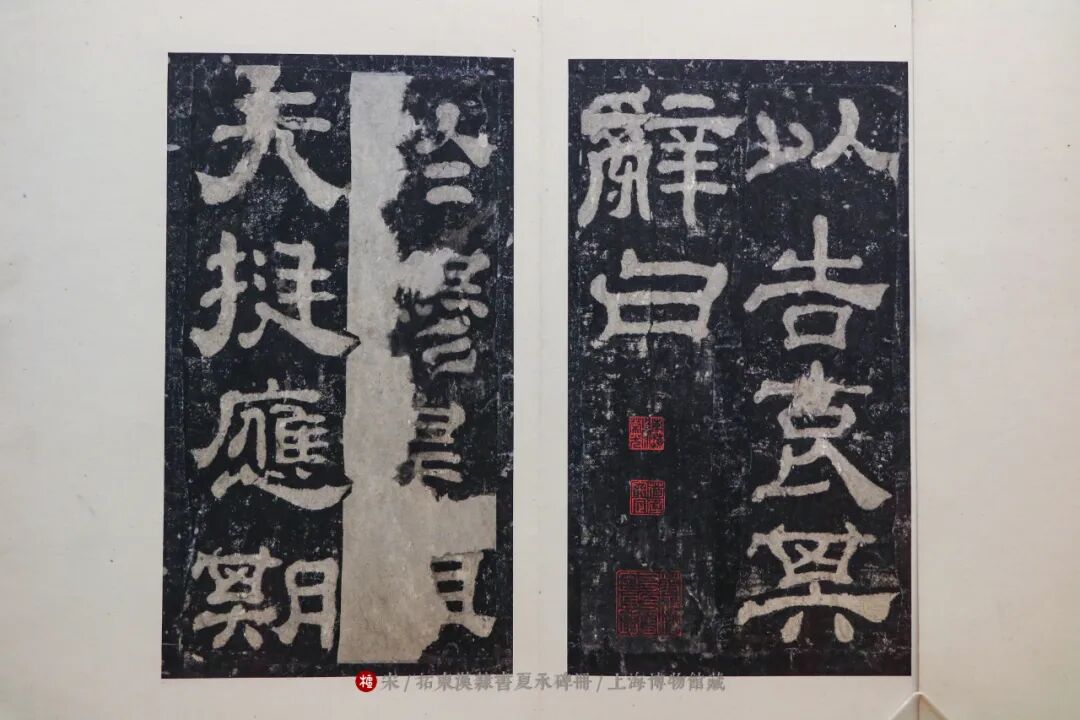 以告哀其
辭曰
於穆皇祖
天挺應期
宋/拓東漢隸書夏承碑冊/上海博物館藏